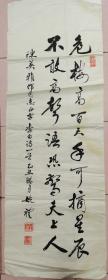 危樓高百尺手可摘星辰
不敢高聲語恐驚天上人
李白詩一首乙丑